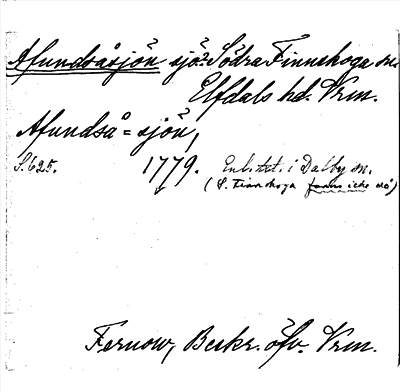 Afundsåsjön sjö? Södra Finnskoga sn.
Elfdals hd. Vrm.
Afundså-sjön,
S. 625. 1779. Enl. tit. i Dalby sn.
(S. Finnskoga fanns icke då)
Fernow, Beskr. öfv. Vrm.